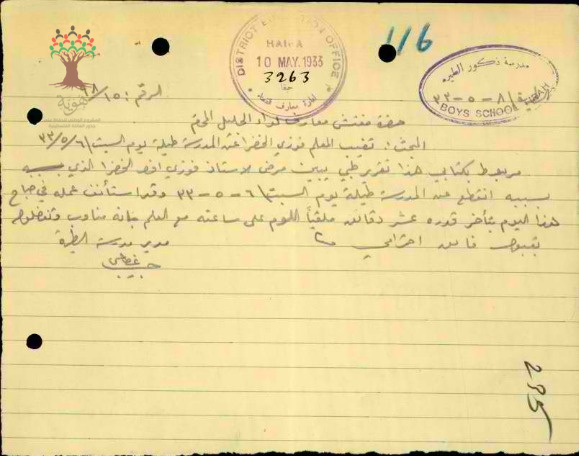 116
DISTRICT EDUCATION OFFICE
HAIFA
10 MAY. 1933
3263
مدرسة ذكور الطيره
٨ - ٥ - ٣٣
BOYS SCHOOL
الرقم: ١٥/١٨
حضرة مفتش معارف لواء الجليل المحترم
المبحث: تغيب المعلم فوزي الخضرا عن المدرسة طيلة يوم السبت ٦/٥/٣٣
مربوط بكتابي هذا تقرير طبي يبين مرض الاستاذ فوزي افندي الخضرا الذي
بسببه انقطع عن المدرسة طيلة يوم السبت ٦ - ٥ - ٣٣ وقد استأنف عمله في صباح
هذا اليوم بتأخر قدره عشر دقائق ملقياً اللوم على ساعته مع العلم بانه مناوب وتفضلوا
بقبول فائق احترامي
مدير مدرسة الطيرة
235